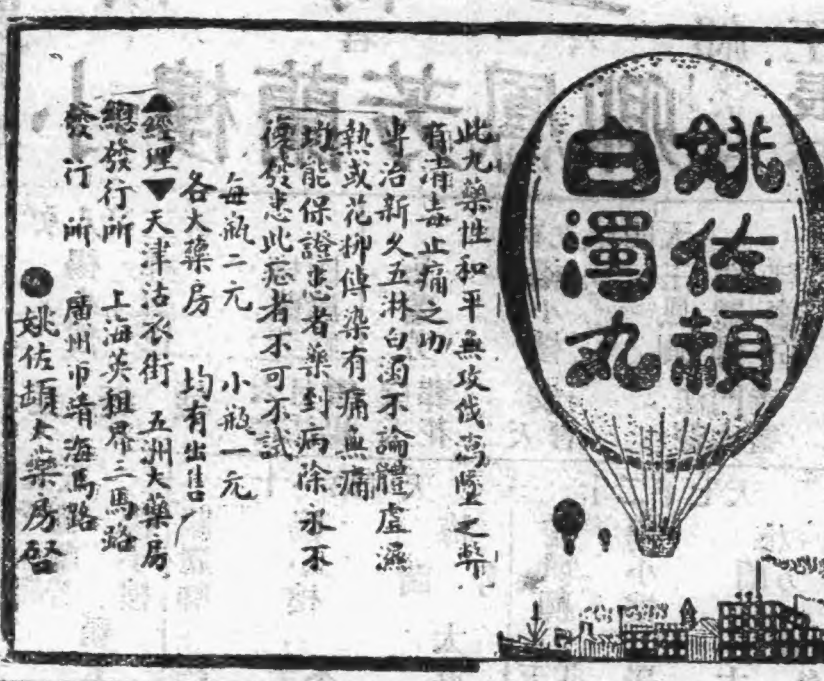 姚佐頓
白濁丸
此丸藥性和平無攻伐瀉墜之弊
有清毒止痛之功
專治新久五淋白濁不論體虛濕
熱或花柳傳染有痛無痛
均能保證患者藥到病除永不
復發患此症者不可不試
每瓶二元 小瓶一元
各大藥房 均有出售
▲經理▼天津沽衣街 五洲大藥房
總發行所 上海英租界三馬路
發行所 廣州市靖海馬路
●姚佐頓大藥房啓